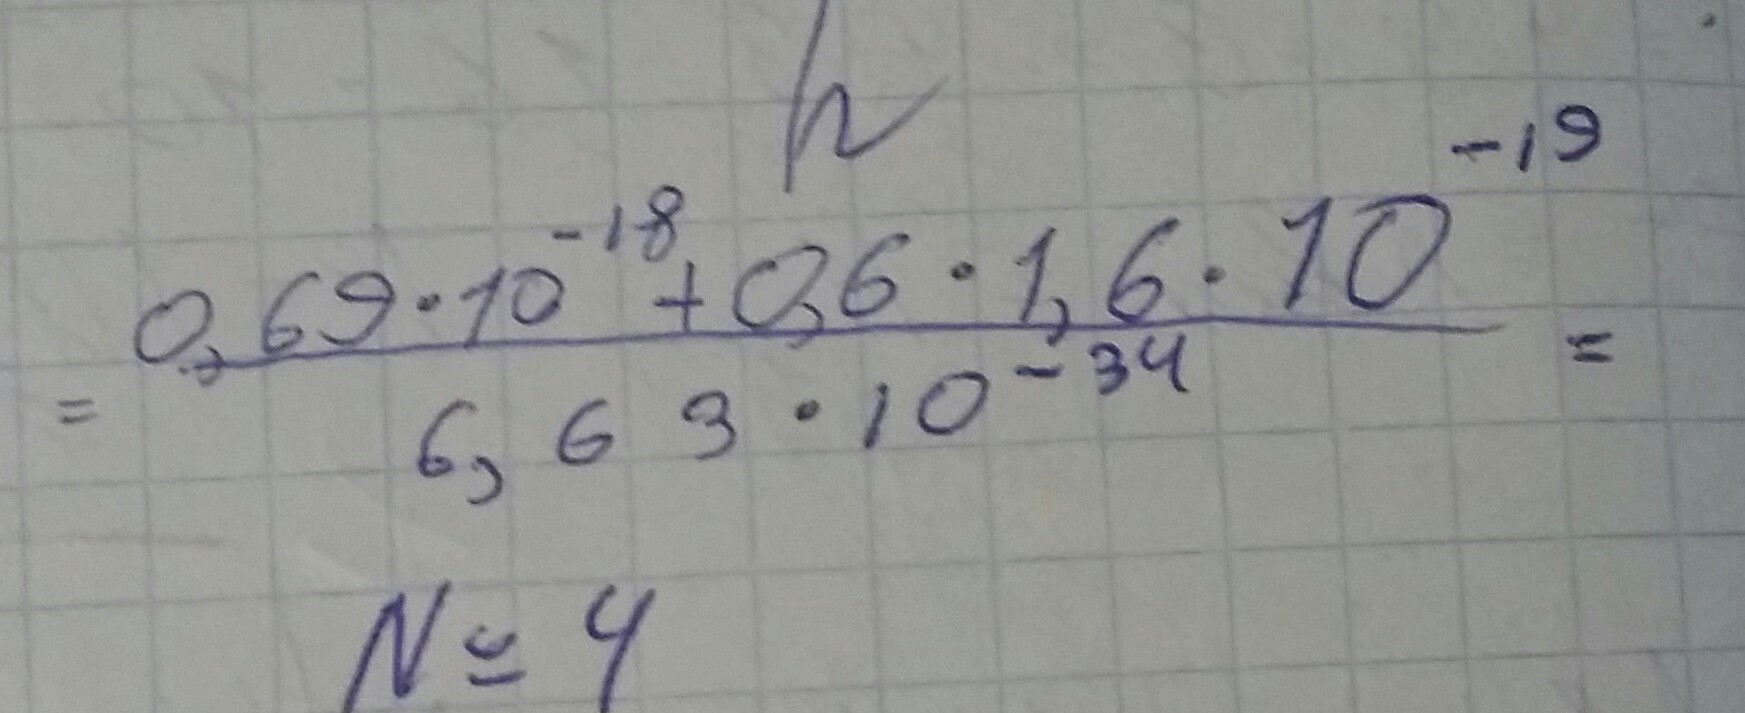 h
= 0,69·10⁻¹⁸ + 0,6 · 1,6 · 10⁻¹⁹ / 6,63 · 10⁻³⁴ =
N = 4